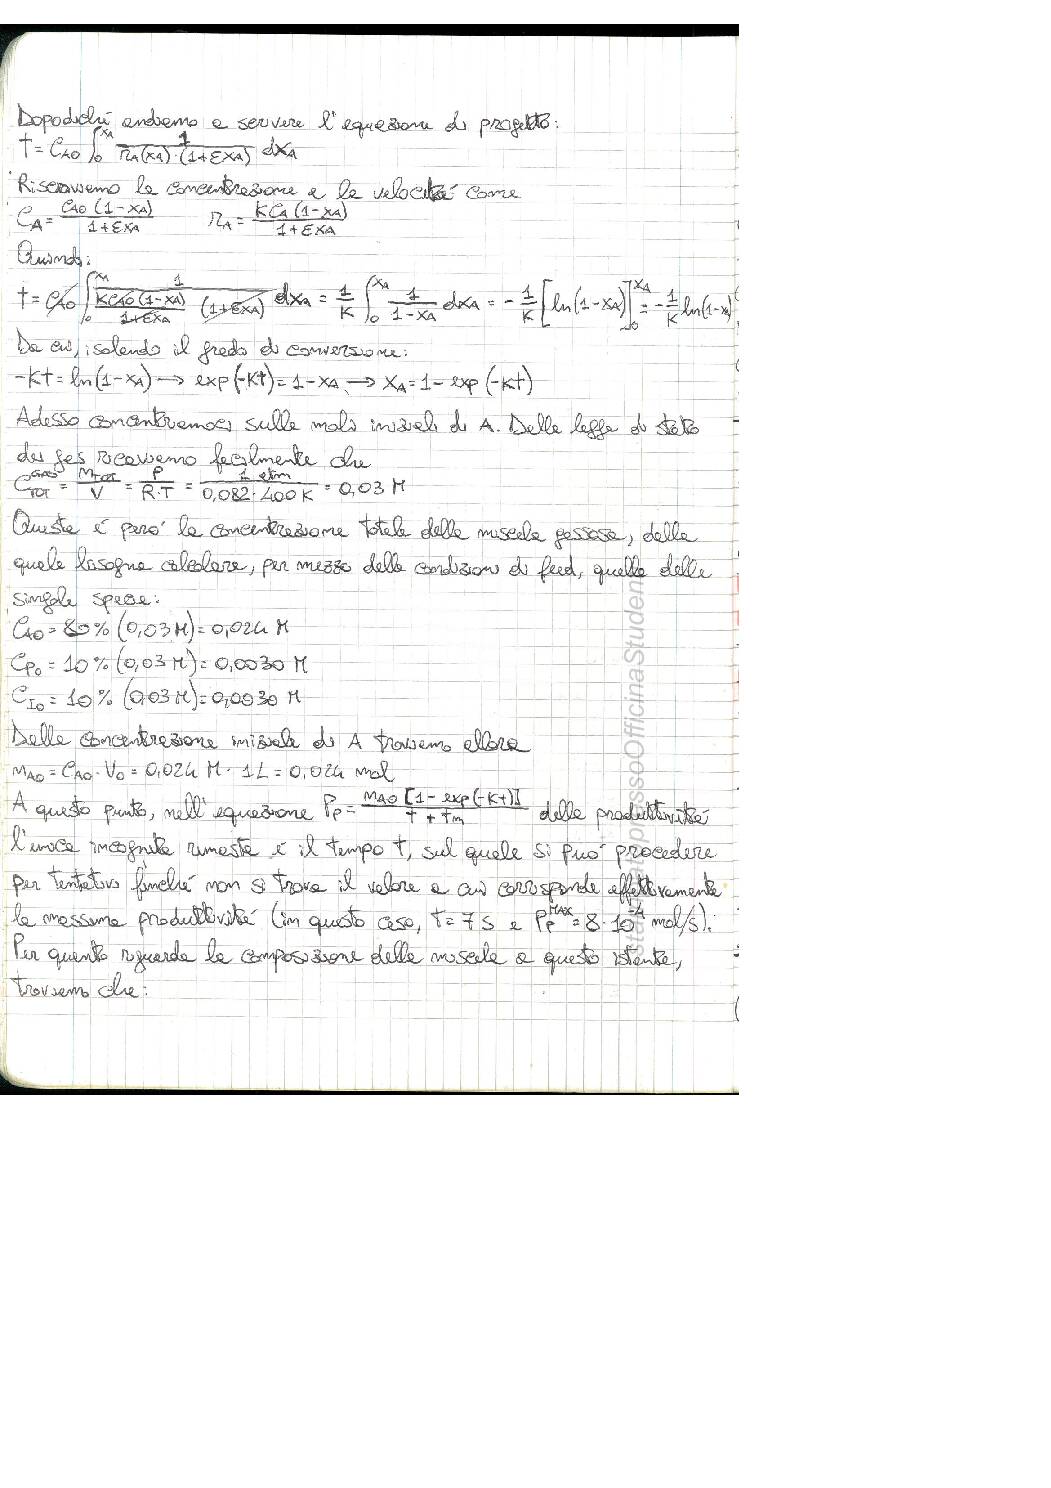 Dopodiché andremo a scrivere l'equazione di progetto:
t = C_A0 ∫_0^{x_A} 1/(r_A(x_A)·(1+εx_A)) dx_A
Riscriviamo la concentrazione e la velocità come
C_A = C_A0(1-x_A)/(1+εx_A)    r_A = KC_A(1-x_A)/(1+εx_A)
Quindi:
t = C_A0 ∫_0^{x_A} 1/(KC_A0(1-x_A)/(1+εx_A) (1+εx_A)) dx_A = 1/K ∫_0^{x_A} 1/(1-x_A) dx_A = -1/K [ln(1-x_A)]_0^{x_A} = -1/K ln(1-x
Da cui, isolando il grado di conversione:
-Kt = ln(1-x_A) → exp(-Kt) = 1-x_A → x_A = 1-exp(-Kt)
Adesso concentriamoci sulle moli iniziali di A. Dalla legge di stato
dei gas ricaviamo facilmente che
C_TOT^GAS = n_TOT/V = P/(R·T) = 1 atm/(0,082·400K) = 0,03 M
Questa è però la concentrazione totale della miscela gassosa, dalla
quale bisogna calcolare, per mezzo delle condizioni di feed, quella delle
singole specie:
C_A0 = 80% (0,03 M) = 0,024 M
C_P0 = 10% (0,03 M) = 0,0030 M
C_I0 = 10% (0,03 M) = 0,0030 M
Dalla concentrazione iniziale di A troviamo allora
n_A0 = C_A0 · V_0 = 0,024 M · 1L = 0,024 mol
A questo punto, nell'equazione P_P = n_A0 [1-exp(-Kt)]/(t+t_m) della produttività
l'unica incognita rimasta è il tempo t, sul quale si può procedere
per tentativi finché non si trova il valore a cui corrisponde effettivamente
la massima produttività (in questo caso, t = 7 s e P_P^MAX = 8·10^-4 mol/s).
Per quanto riguarda la composizione della miscela a questo istante,
troviamo che: